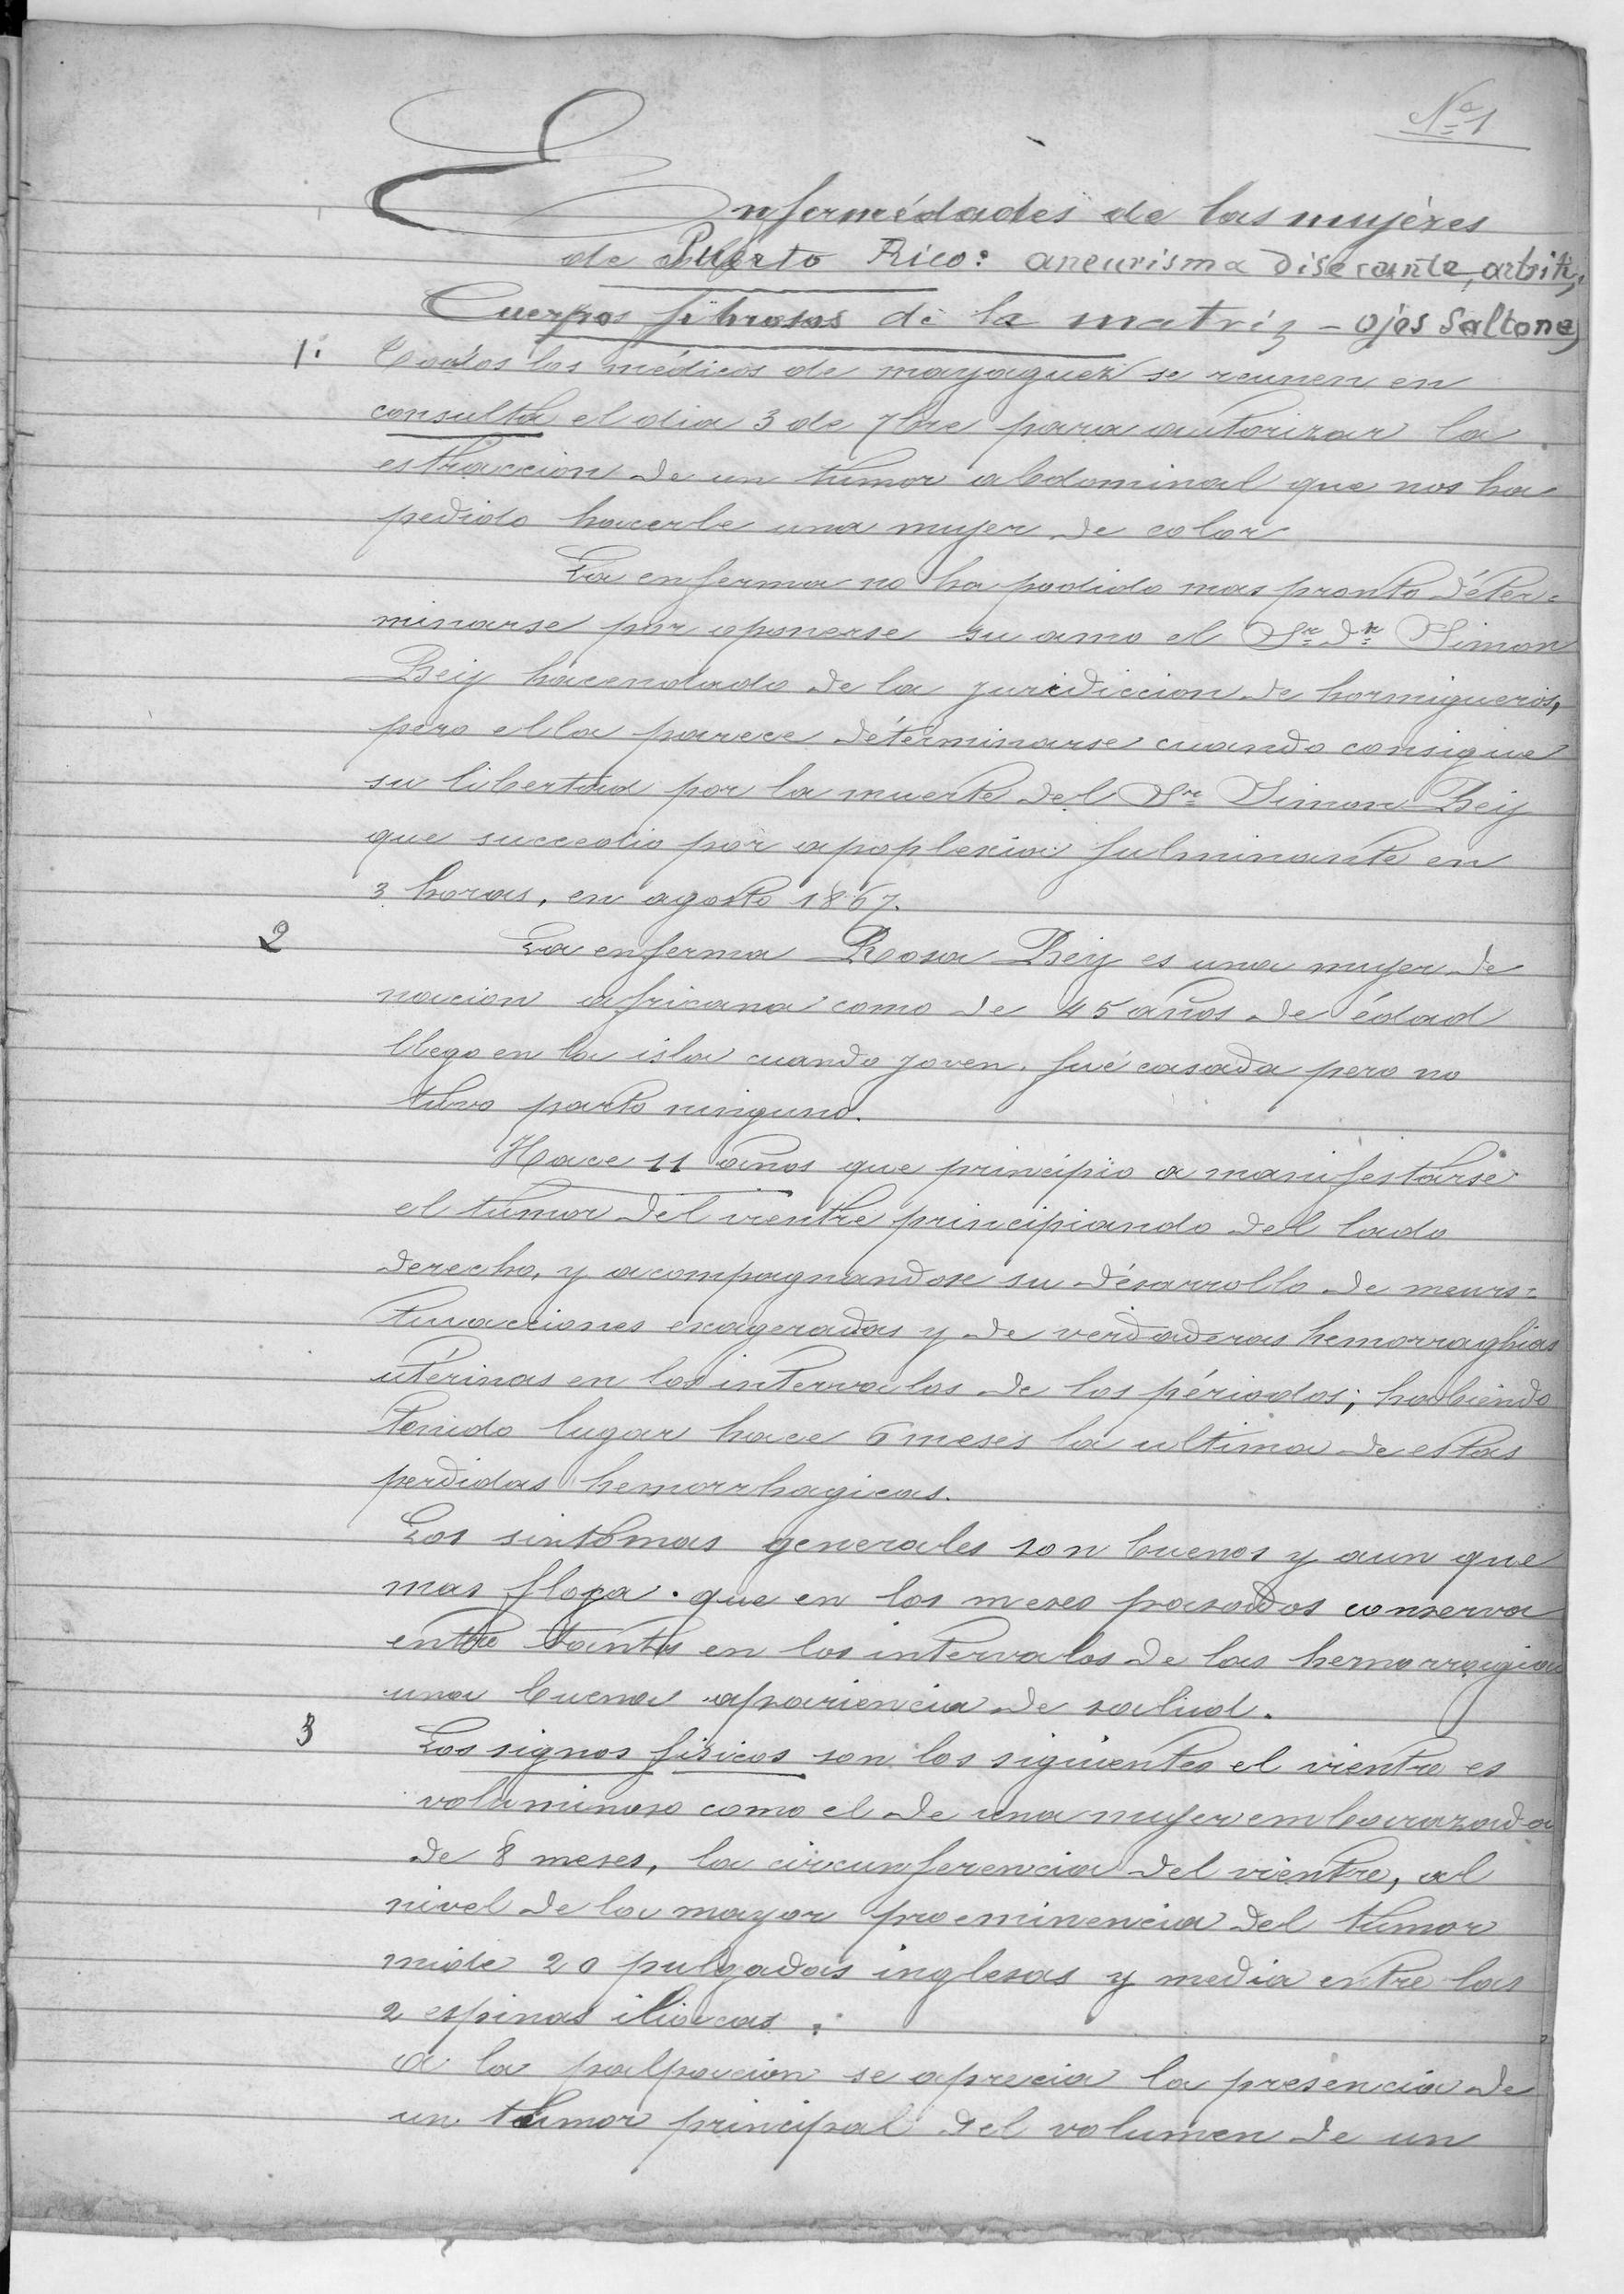 Nº 1
Enfermédades de las mujéres
de Puérto Rico: aneurisma Disecante, artrit,
Cuerpos fibrosos de la matriz - ojos saltones
1. Todos los médicos de mayaguez se reunen en
consulta el dia 3 de 7bre para autorizar la
estraccion de un tumor abdominal que nos ha
pedido hacerle una mujer de color
La enferma no ha podido mas pronto déter-
minarse por oponerse su amo el Sr. Dn. Simon
Beig hacendado de la juridiccion de hormigueros,
pero ella parece déterminarse cuando consigue
su libertad por la muerte del Sr Simon Beig
que succedio por apoplexia fulminante en
3 horas, en agosto 1867.
2 La enferma Rosa Beig es una mujer de
nacion africana como de 45 años de édad
llego en la isla cuando joven. fué casada pero no
tubo parto ninguno.
Hace 11 años que principio a manifestarse
el tumor del vientre principiando del lado
derecho, y acompagnandose su désarrollo de mens-
truacciones exageradas y de verdaderas hemorraghias
utérinas en los intervalos de los périodos; habiendo
tenido lugar hace 6 meses la ultima de estas
perdidas hemorrhagicas.
Los sintomas generales son buenos y aun que
mas floja. que en los meses pasados conserva
entre tanto en los intervalos de las hemorragias
una buena apariencia de salud.
3 Los signos fisicos son los siguientes el vientre es
voluminoso como el de una mujer embarazada
de 8 meses, la circumferencia del vientre, al
nivel de la mayor proeminencia del tumor
mide 20 pulgadas inglesas y media entre las
2 espinas iliacas.
a la palpacion se aprecia la présencia de
un tumor principal del volumen de un